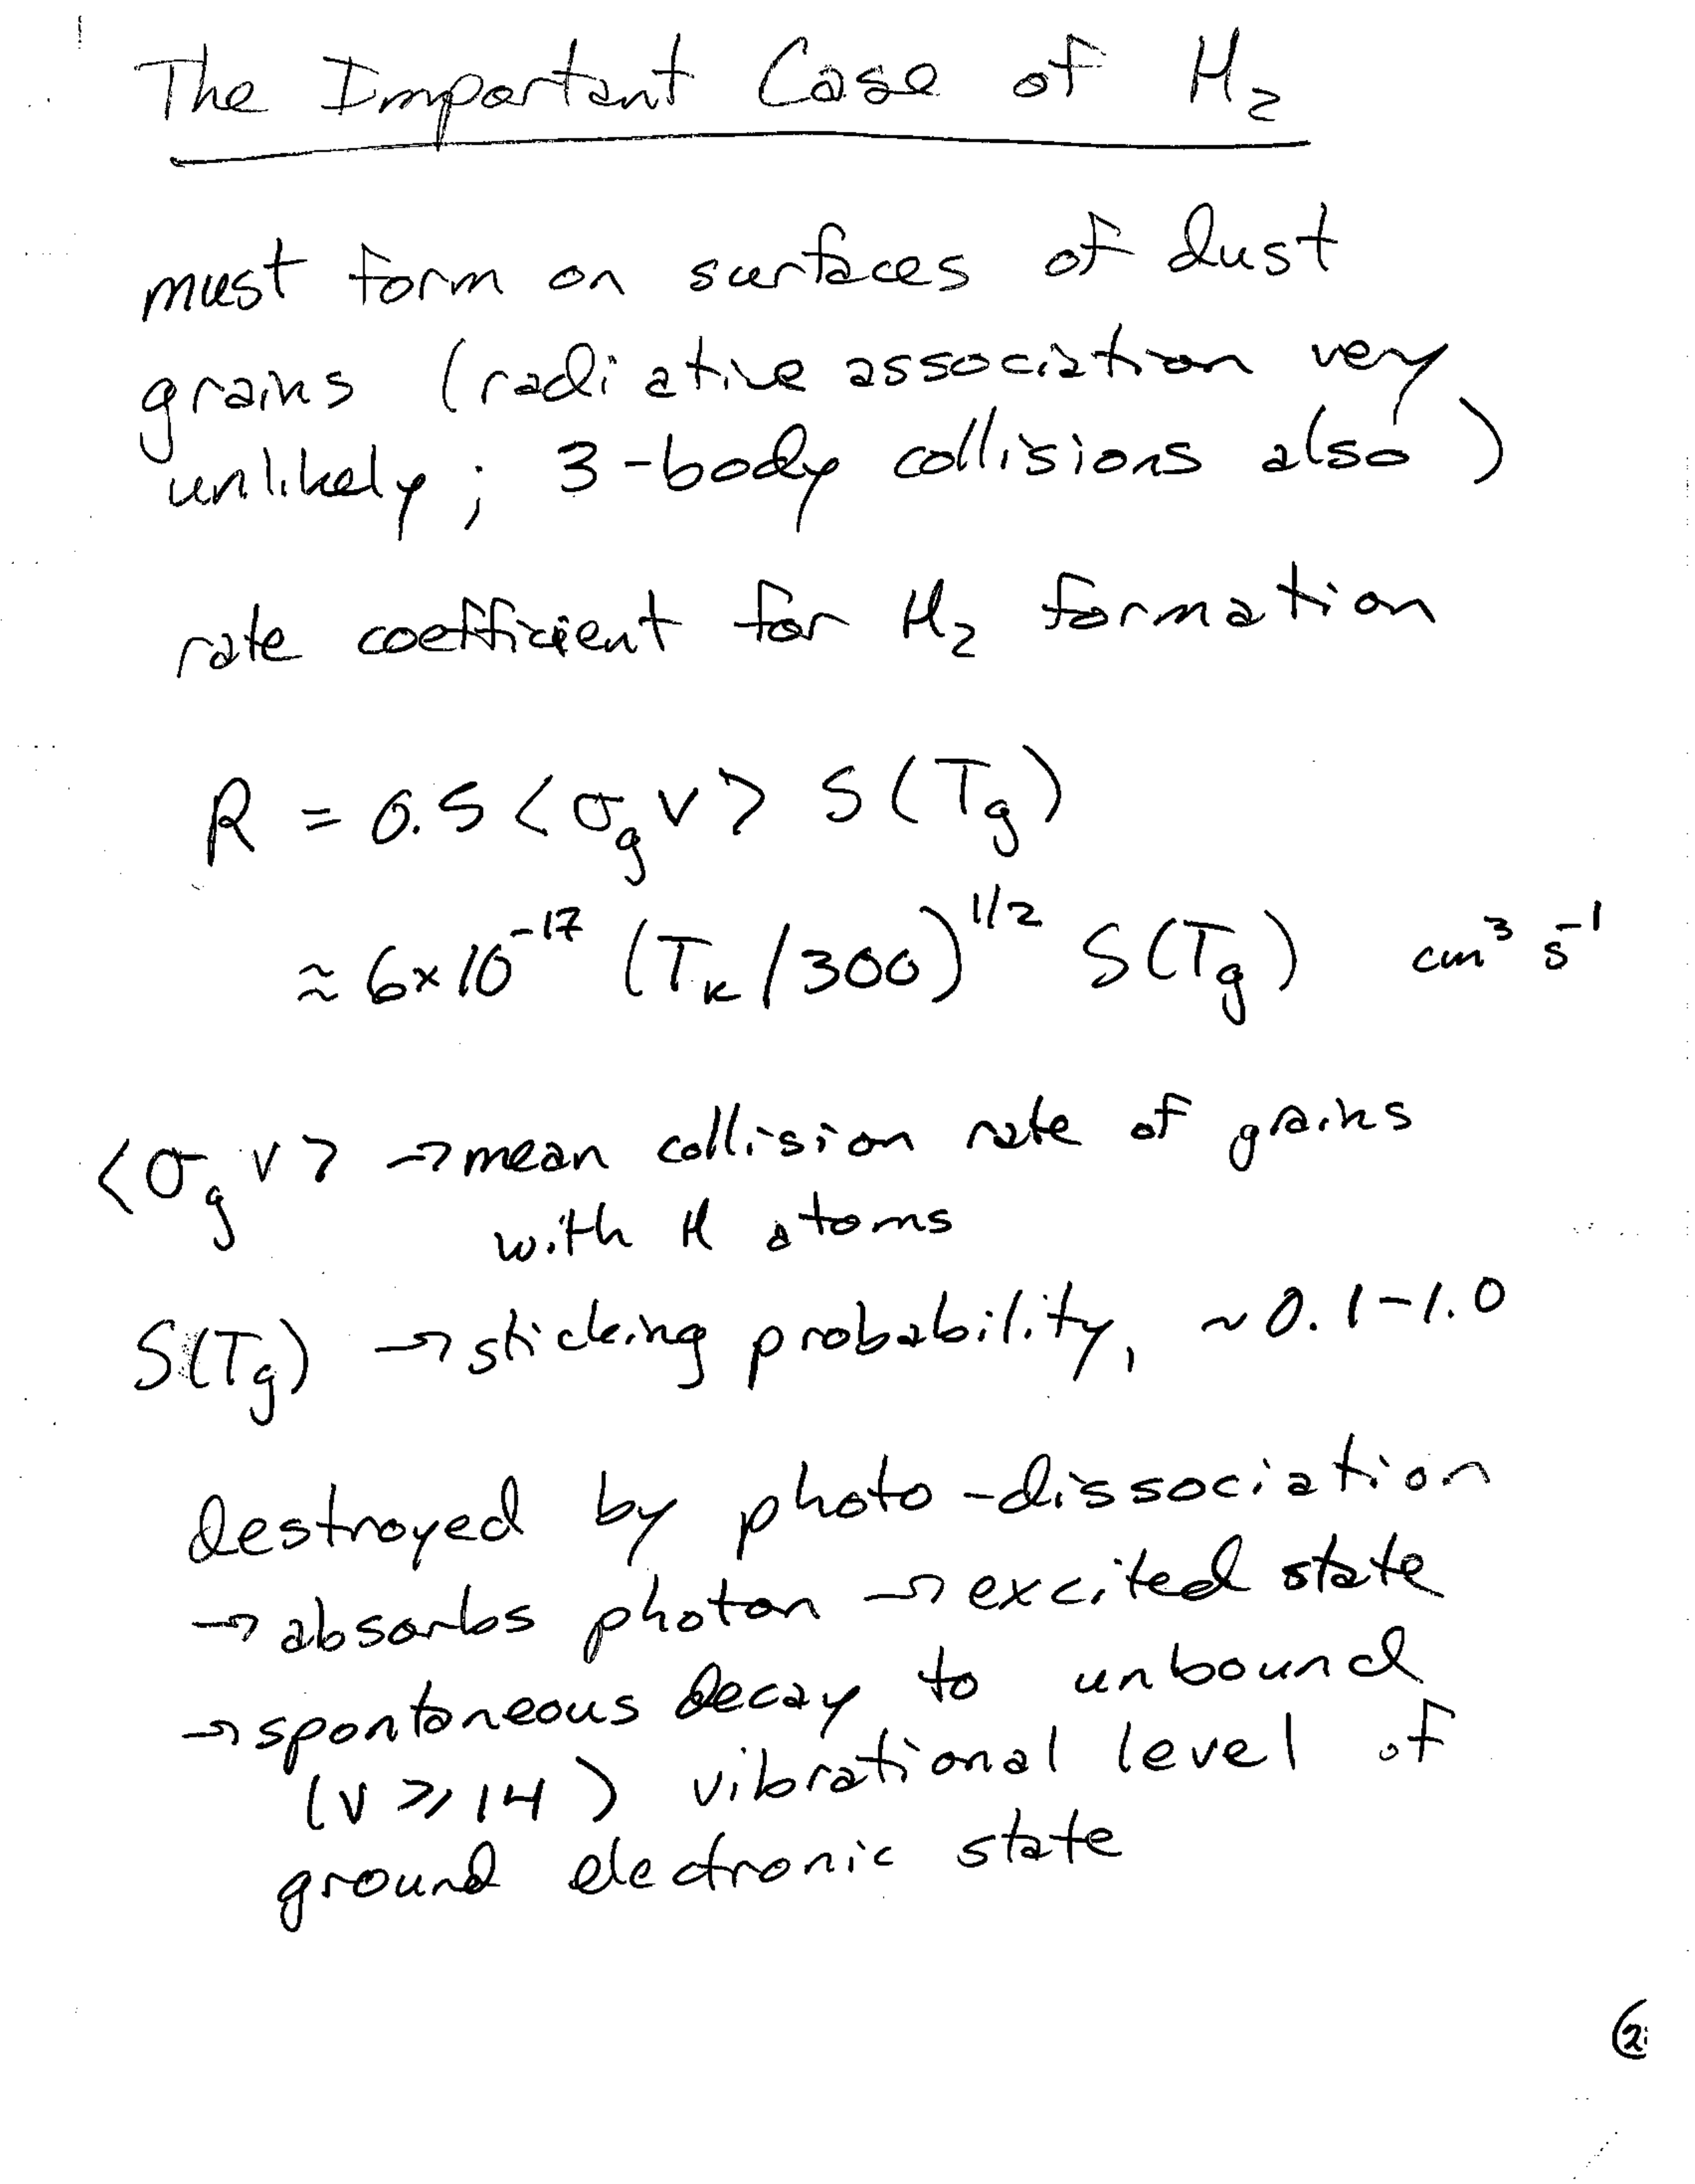 The Important Case of H₂
must form on surfaces of dust
grains (radiative association very
unlikely; 3-body collisions also)
rate coefficient for H₂ formation
R = 0.5 <σ_g v> S(T_g)
≈ 6×10⁻¹⁷ (T_K/300)^1/2 S(T_g) cm³ s⁻¹
<σ_g v> → mean collision rate of grains
with H atoms
S(T_g) → sticking probability, ~0.1-1.0
destroyed by photo-dissociation
→ absorbs photon → excited state
→ spontaneous decay to unbound
(v ≥ 14) vibrational level of
ground electronic state
2